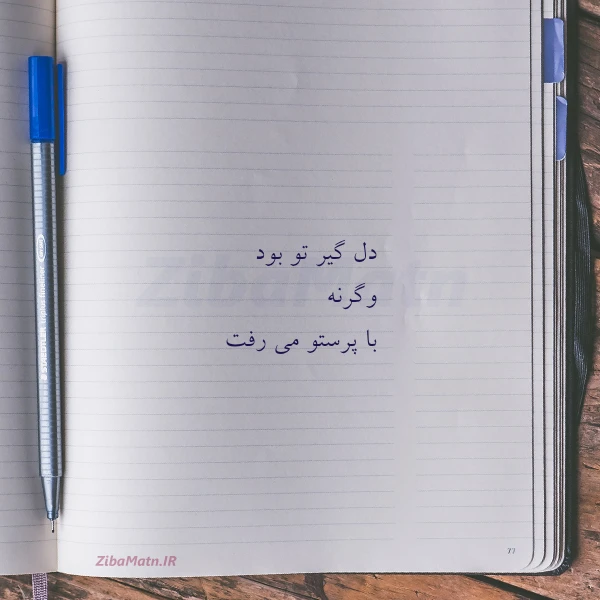 دل گیر تو بود
وگرنه
با پرستو می رفت
ZibaMatn
ZibaMatn.IR
77